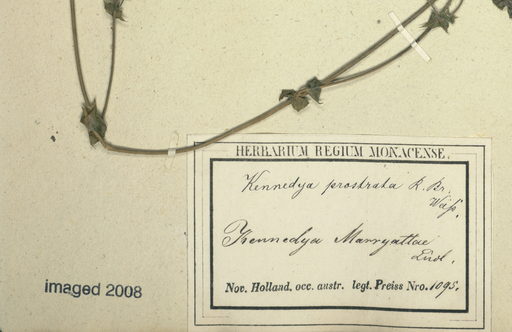 HERBARIUM REGIUM MONACENSE.
Kennedya prostrata R. Br.
Kennedya Marryattae
Nov. Holland. occ. austr. legt. Preiss Nro. 1095.
imaged 2008